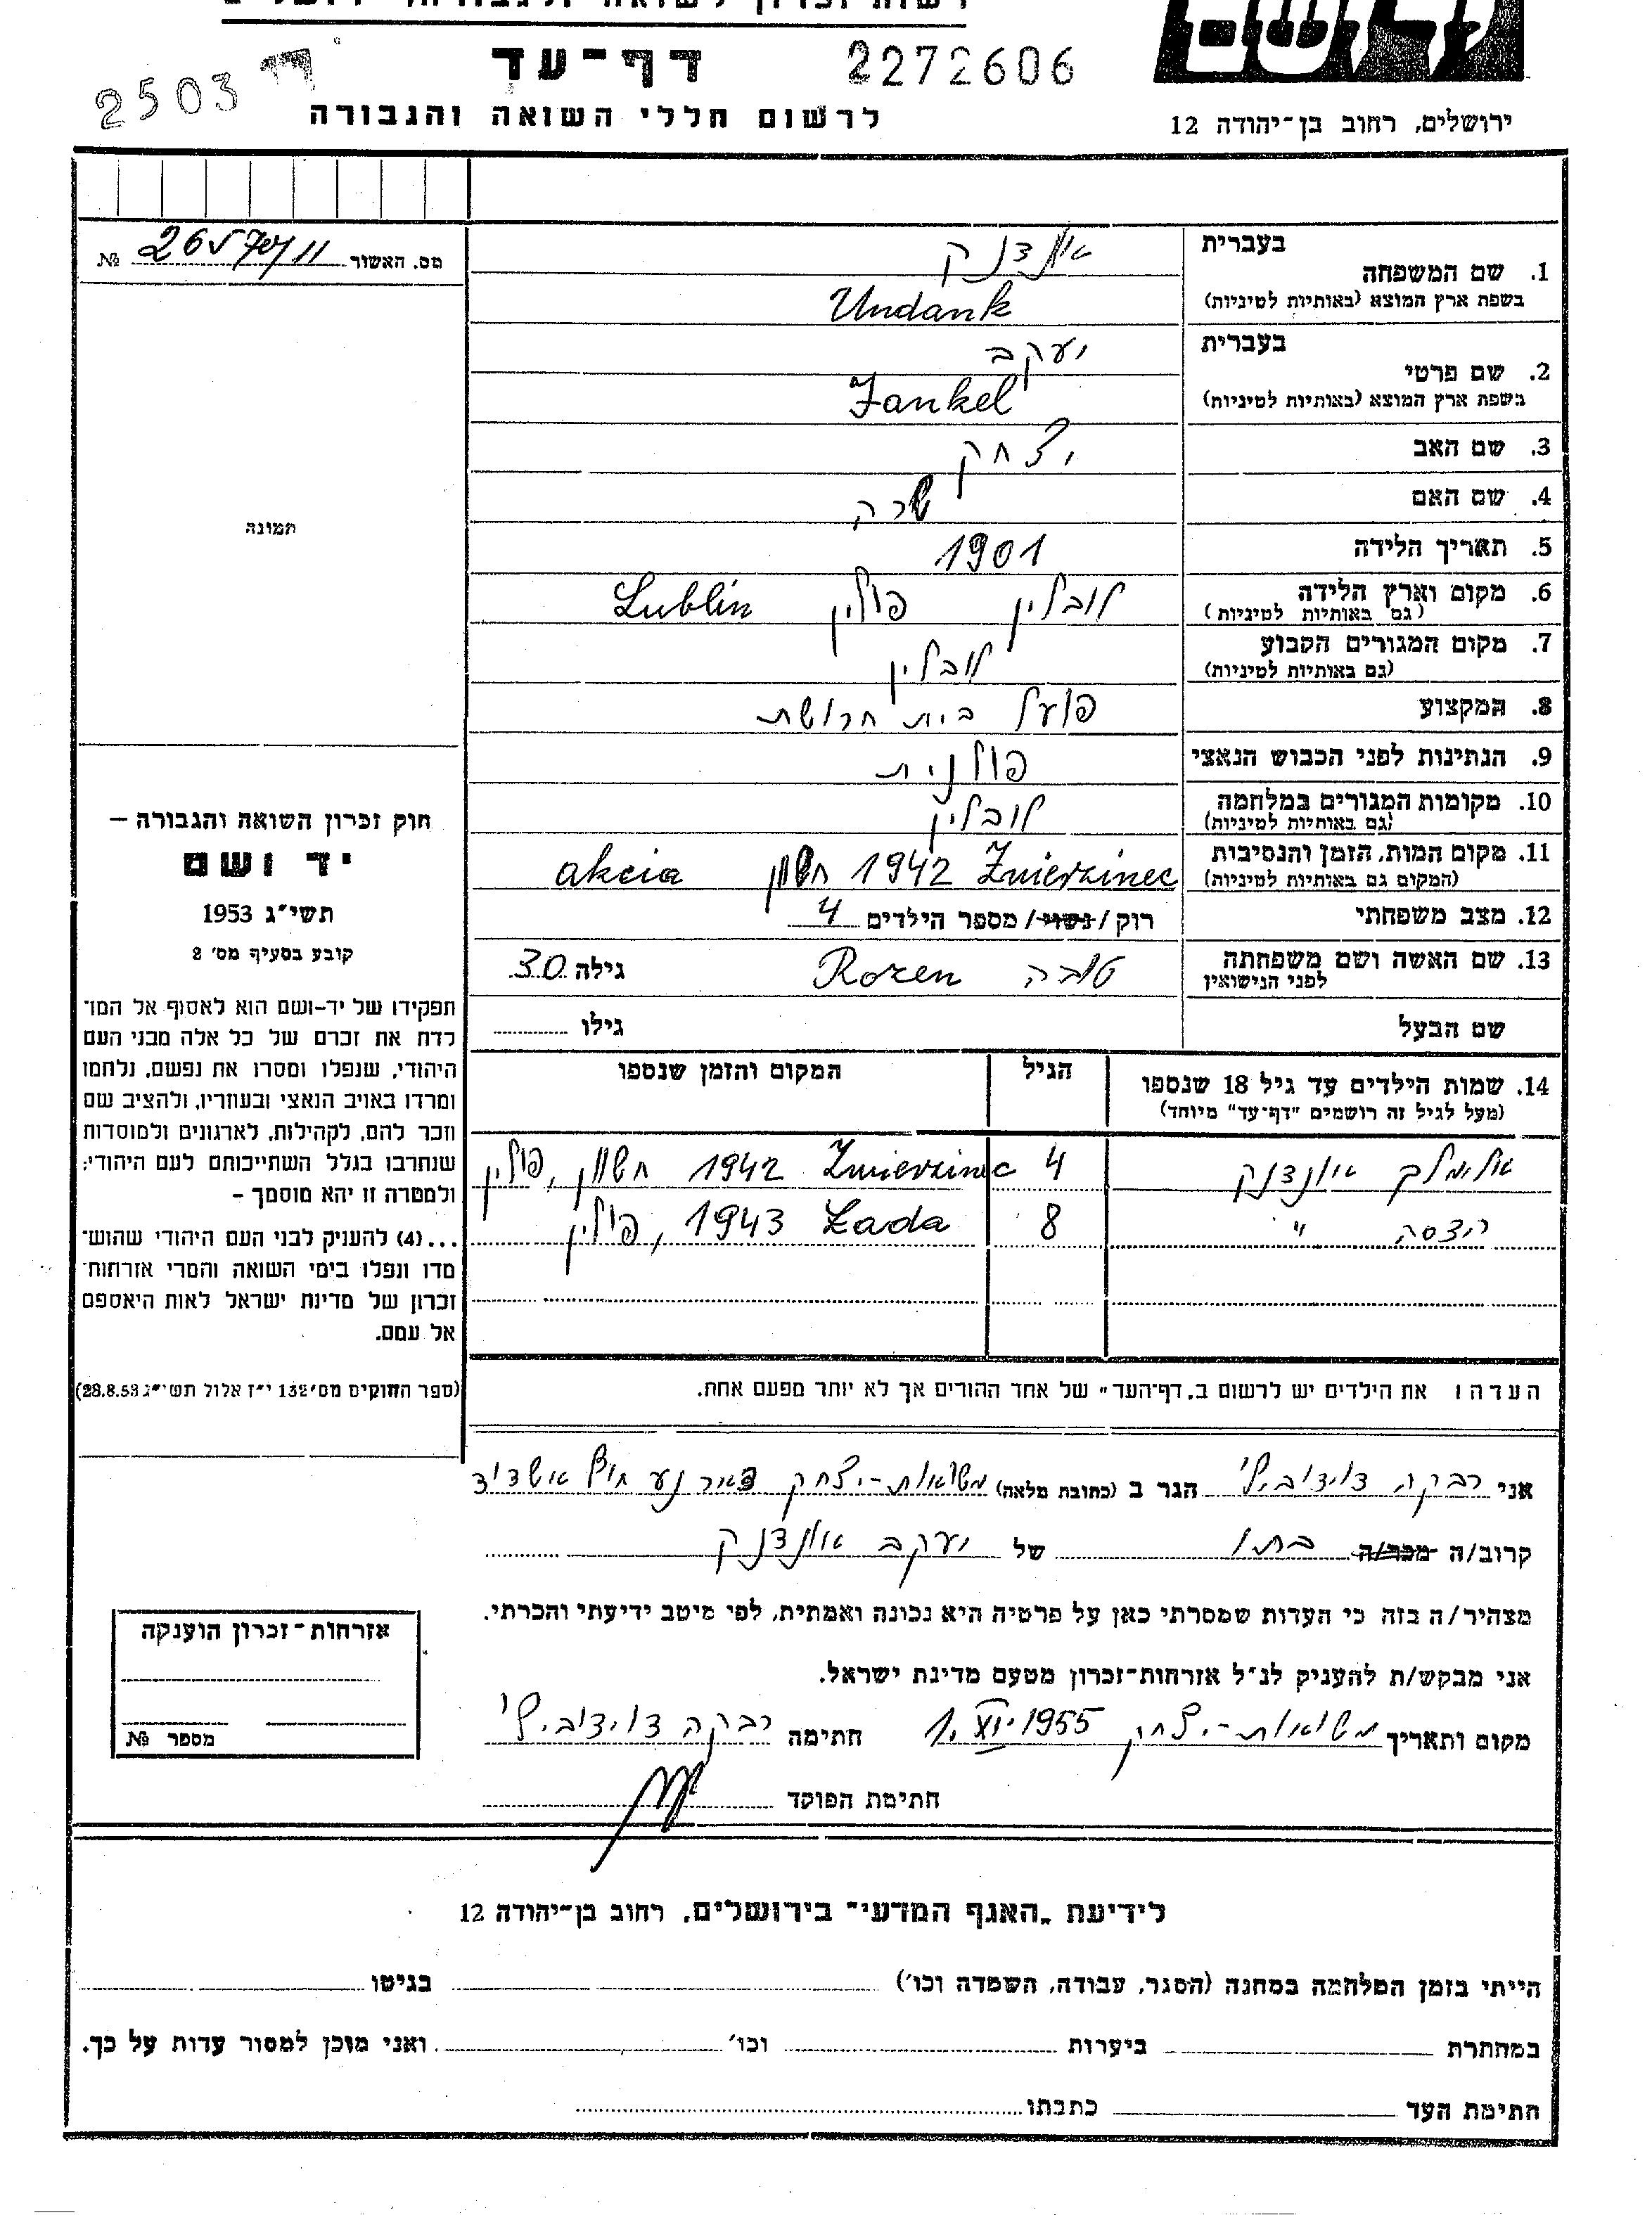 דף-עד
2272606
2503
לרשום חללי השואה והגבורה
ירושלים, רחוב בן-יהודה 12
מס. האשור № 
בעברית אונדנק
1. שם המשפחה
בשפת ארץ המוצא (באותיות לטיניות) Undank
בעברית יעקב
2. שם פרטי
בשפת ארץ המוצא (באותיות לטיניות) Jankel
3. שם האב יצחק
4. שם האם שרה
5. תאריך הלידה 1901
6. מקום וארץ הלידה לובלין פולין Lublin
(גם באותיות לטיניות)
7. מקום המגורים הקבוע לובלין
(גם באותיות לטיניות)
8. המקצוע פועל בית חרושת
9. הנתינות לפני הכבוש הנאצי פולנית
10. מקומות המגורים במלחמה לובלין
(גם באותיות לטיניות)
11. מקום המות, הזמן והנסיבות Zwierzinec 1942 חשון akcia
(המקום גם באותיות לטיניות)
12. מצב משפחתי רוק/נשוי/מספר הילדים 4
13. שם האשה ושם משפחתה טובה Rozen גילה 30
לפני הנישואין
שם הבעל גילו
14. שמות הילדים עד גיל 18 שנספו הגיל המקום והזמן שנספו
(מעל לגיל זה רושמים "דף-עד" מיוחד)
אלימלך אונדנק 4 Zwierzinec 1942 חשון, פולין
הדסה " 8 Lada 1943, פולין
העדהו את הילדים יש לרשום ב"דף-העד" של אחד ההורים אך לא יותר מפעם אחת.
תמונה
חוק זכרון השואה והגבורה –
יד ושם
תשי"ג 1953
קובע בסעיף מס' 2
תפקידו של יד-ושם הוא לאסוף אל המו־
לדת את זכרם של כל אלה מבני העם
היהודי, שנפלו ומסרו את נפשם, נלחמו
ומרדו באויב הנאצי ובעוזריו, ולהציב שם
וזכר להם, לקהילות, לארגונים ולמוסדות
שנחרבו בגלל השתייכותם לעם היהודי;
ולמטרה זו יהא מוסמך –
...(4) להעניק לבני העם היהודי שהוש־
מדו ונפלו בימי השואה והמרי אזרחות־
זכרון של מדינת ישראל לאות היאספם
אל עמם.
(ספר החוקים מס' 132 י"ז אלול תשי"ג 28.8.53)
אני רבקה דוידוביץ' הגר ב (כתובת מלאה) משואות-יצחק באר נע חוף אשדוד
קרוב/ה מכר/ה בתו של יעקב אונדנק
מצהיר/ה בזה כי העדות שמסרתי כאן על פרטיה היא נכונה ואמתית, לפי מיטב ידיעתי והכרתי.
אני מבקש/ת להעניק לנ"ל אזרחות-זכרון מטעם מדינת ישראל.
מקום ותאריך משואות-יצחק 1955 חתימה רבקה דוידוביץ'
חתימת הפוקד
אזרחות-זכרון הוענקה
מספר №
לידיעת "האגף המדעי" בירושלים, רחוב בן-יהודה 12
הייתי בזמן המלחמה במחנה (הסגר, עבודה, השמדה וכו') בגיטו
במחתרת ביערות וכו' ואני מוכן למסור עדות על כך.
חתימת העד כתבתו